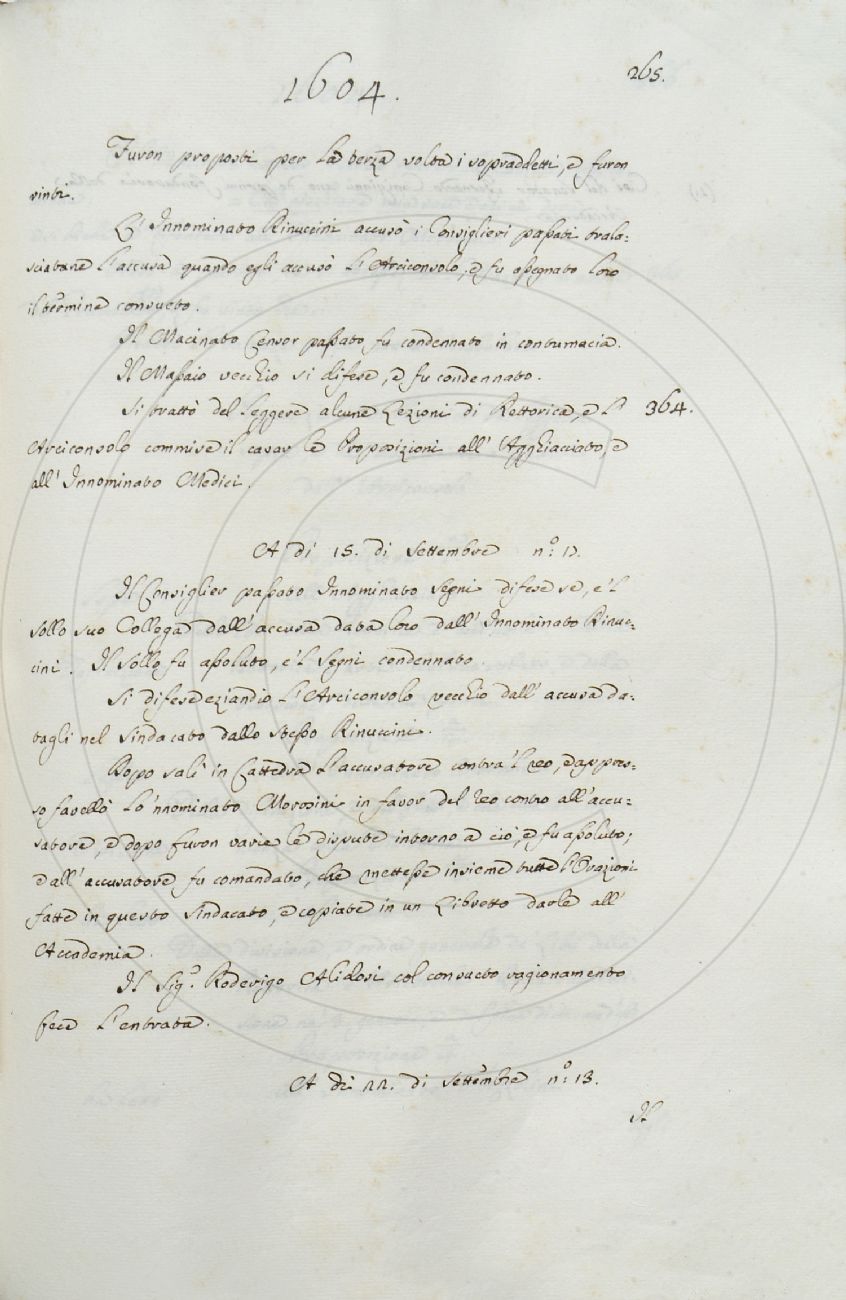 1604.
265.
Furon proposti per la terza volta i sopraddetti, e furon
vinti.
L'Innominato Rinuccini accusò i Consiglieri passati trala=
sciatane l'accusa quando egli accusò l'Arciconsolo, e fu assegnato loro
il termine consueto.
Il Macinato Censor passato fu condennato in contumacia.
Il Massaio vecchio si difese, e fu condennato.
Si trattò del leggere alcune Lezioni di Rettorica, e l'
364.
Arciconsolo commise il cavar le Proposizioni all'Agghiacciato, e
all'Innominato Medici.
A di 15. di Settembre n.° 12.
Il Consiglier passato Innominato Segni difese se, e'l
Sollo suo Collega dall'accusa data loro dall'Innominato Rinuc=
cini. Il Sollo fu assoluto, e'l Segni condennato.
Si difese eziandio l'Arciconsolo vecchio dall'accusa da=
tagli nel sindacato dallo stesso Rinuccini.
Dopo salì in Cattedra l'accusatore contra'l reo, e appres=
so favellò lo'nnominato Morosini in favor del reo contro all'accu=
satore, e dopo furon varie le dispute intorno a ciò, e fu assoluto;
e all'accusatore fu comandato, che mettesse insieme tutte l'Orazioni
fatte in questo sindacato, e copiate in un Libretto darle all'
Accademia.
Il Sig.r Roderigo Alidosi col consueto ragionamento
fece l'entrata.
A di 22. di Settembre n.° 13.
Il